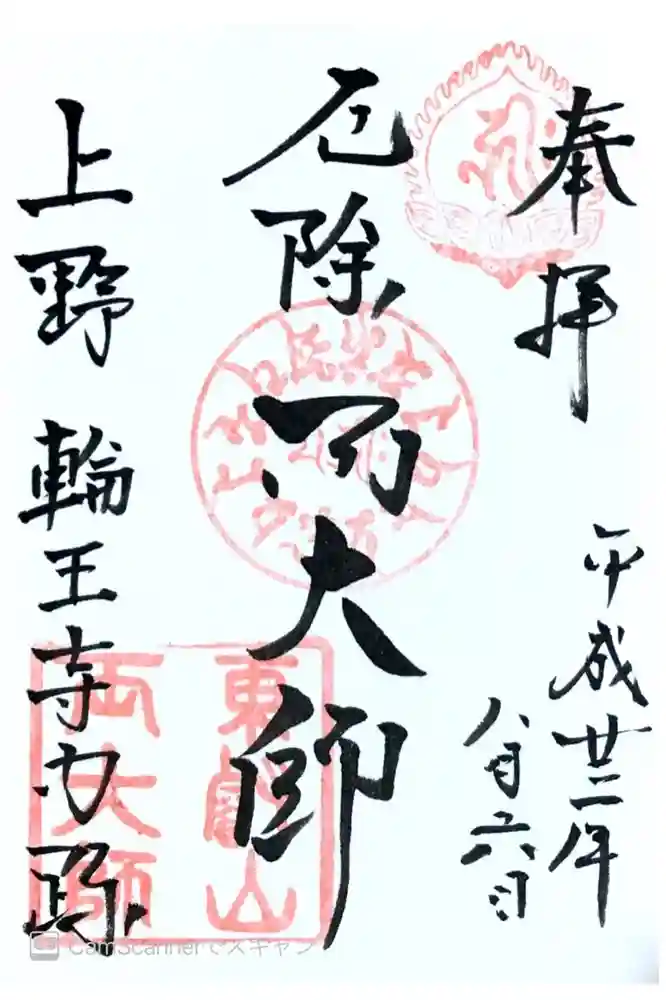 奉拝
平成廿二年
八月六日
厄除
両大師
上野 輪王寺
東叡山
両大師
CamScannerでスキャン